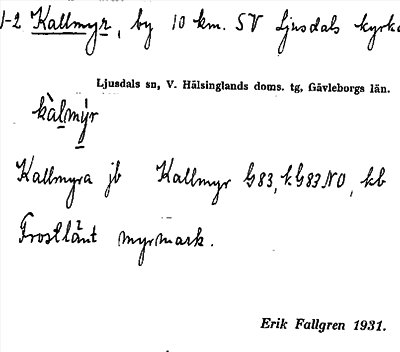 1-2 Kallmyr, by 10 km. SV Ljusdals kyrka
Ljusdals sn, V. Hälsinglands doms. tg, Gävleborgs län.
kàlmýr
Kallmyra jb Kallmyr G83, kG83NO, kb
Frostlänt myrmark.
Erik Fallgren 1931.